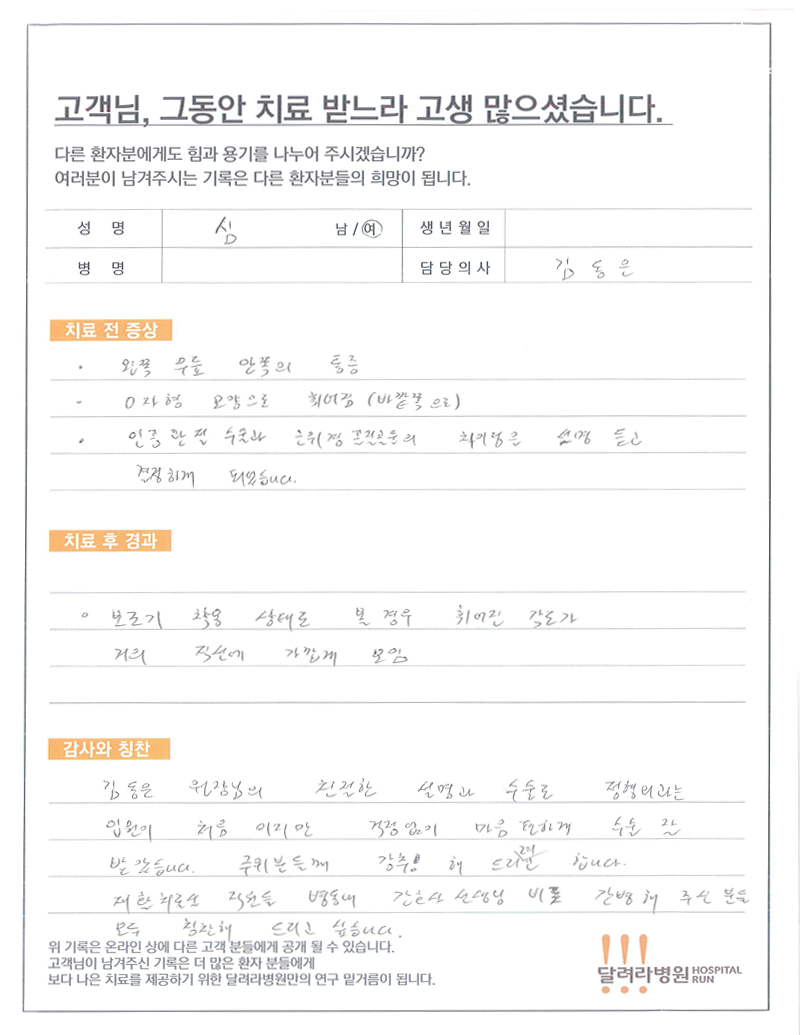 고객님, 그동안 치료 받느라 고생 많으셨습니다.
다른 환자분에게도 힘과 용기를 나누어 주시겠습니까?
여러분이 남겨주시는 기록은 다른 환자분들의 희망이 됩니다.
성 명 심 남 / 여 생년월일
병 명 담당의사 김동은
치료 전 증상
· 왼쪽 무릎 안쪽의 통증
- O자형 모양으로 휘어짐 (바깥쪽으로)
· 인공관절 수술과 근위경골절골술의 차이점을 설명 듣고
결정하게 되었습니다.
치료 후 경과
o 보조기 착용 상태로 볼 경우 휘어진 각도가
거의 직선에 가깝게 보임
감사와 칭찬
김동은 원장님의 친절한 설명과 수술로 정형외과는
입원이 처음 이지만 걱정없이 마음 편하게 수술 잘
받았습니다. 주위분들께 강추! 해 드리려 합니다.
재활치료사 직원들 병동내 간호사 선생님 비롯 간병해 주신 분들
모두 칭찬해 드리고 싶습니다.
위 기록은 온라인 상에 다른 고객 분들에게 공개 될 수 있습니다.
고객님이 남겨주신 기록은 더 많은 환자 분들에게
보다 나은 치료를 제공하기 위한 달려라병원만의 연구 밑거름이 됩니다.
!!! 달려라병원 HOSPITAL RUN